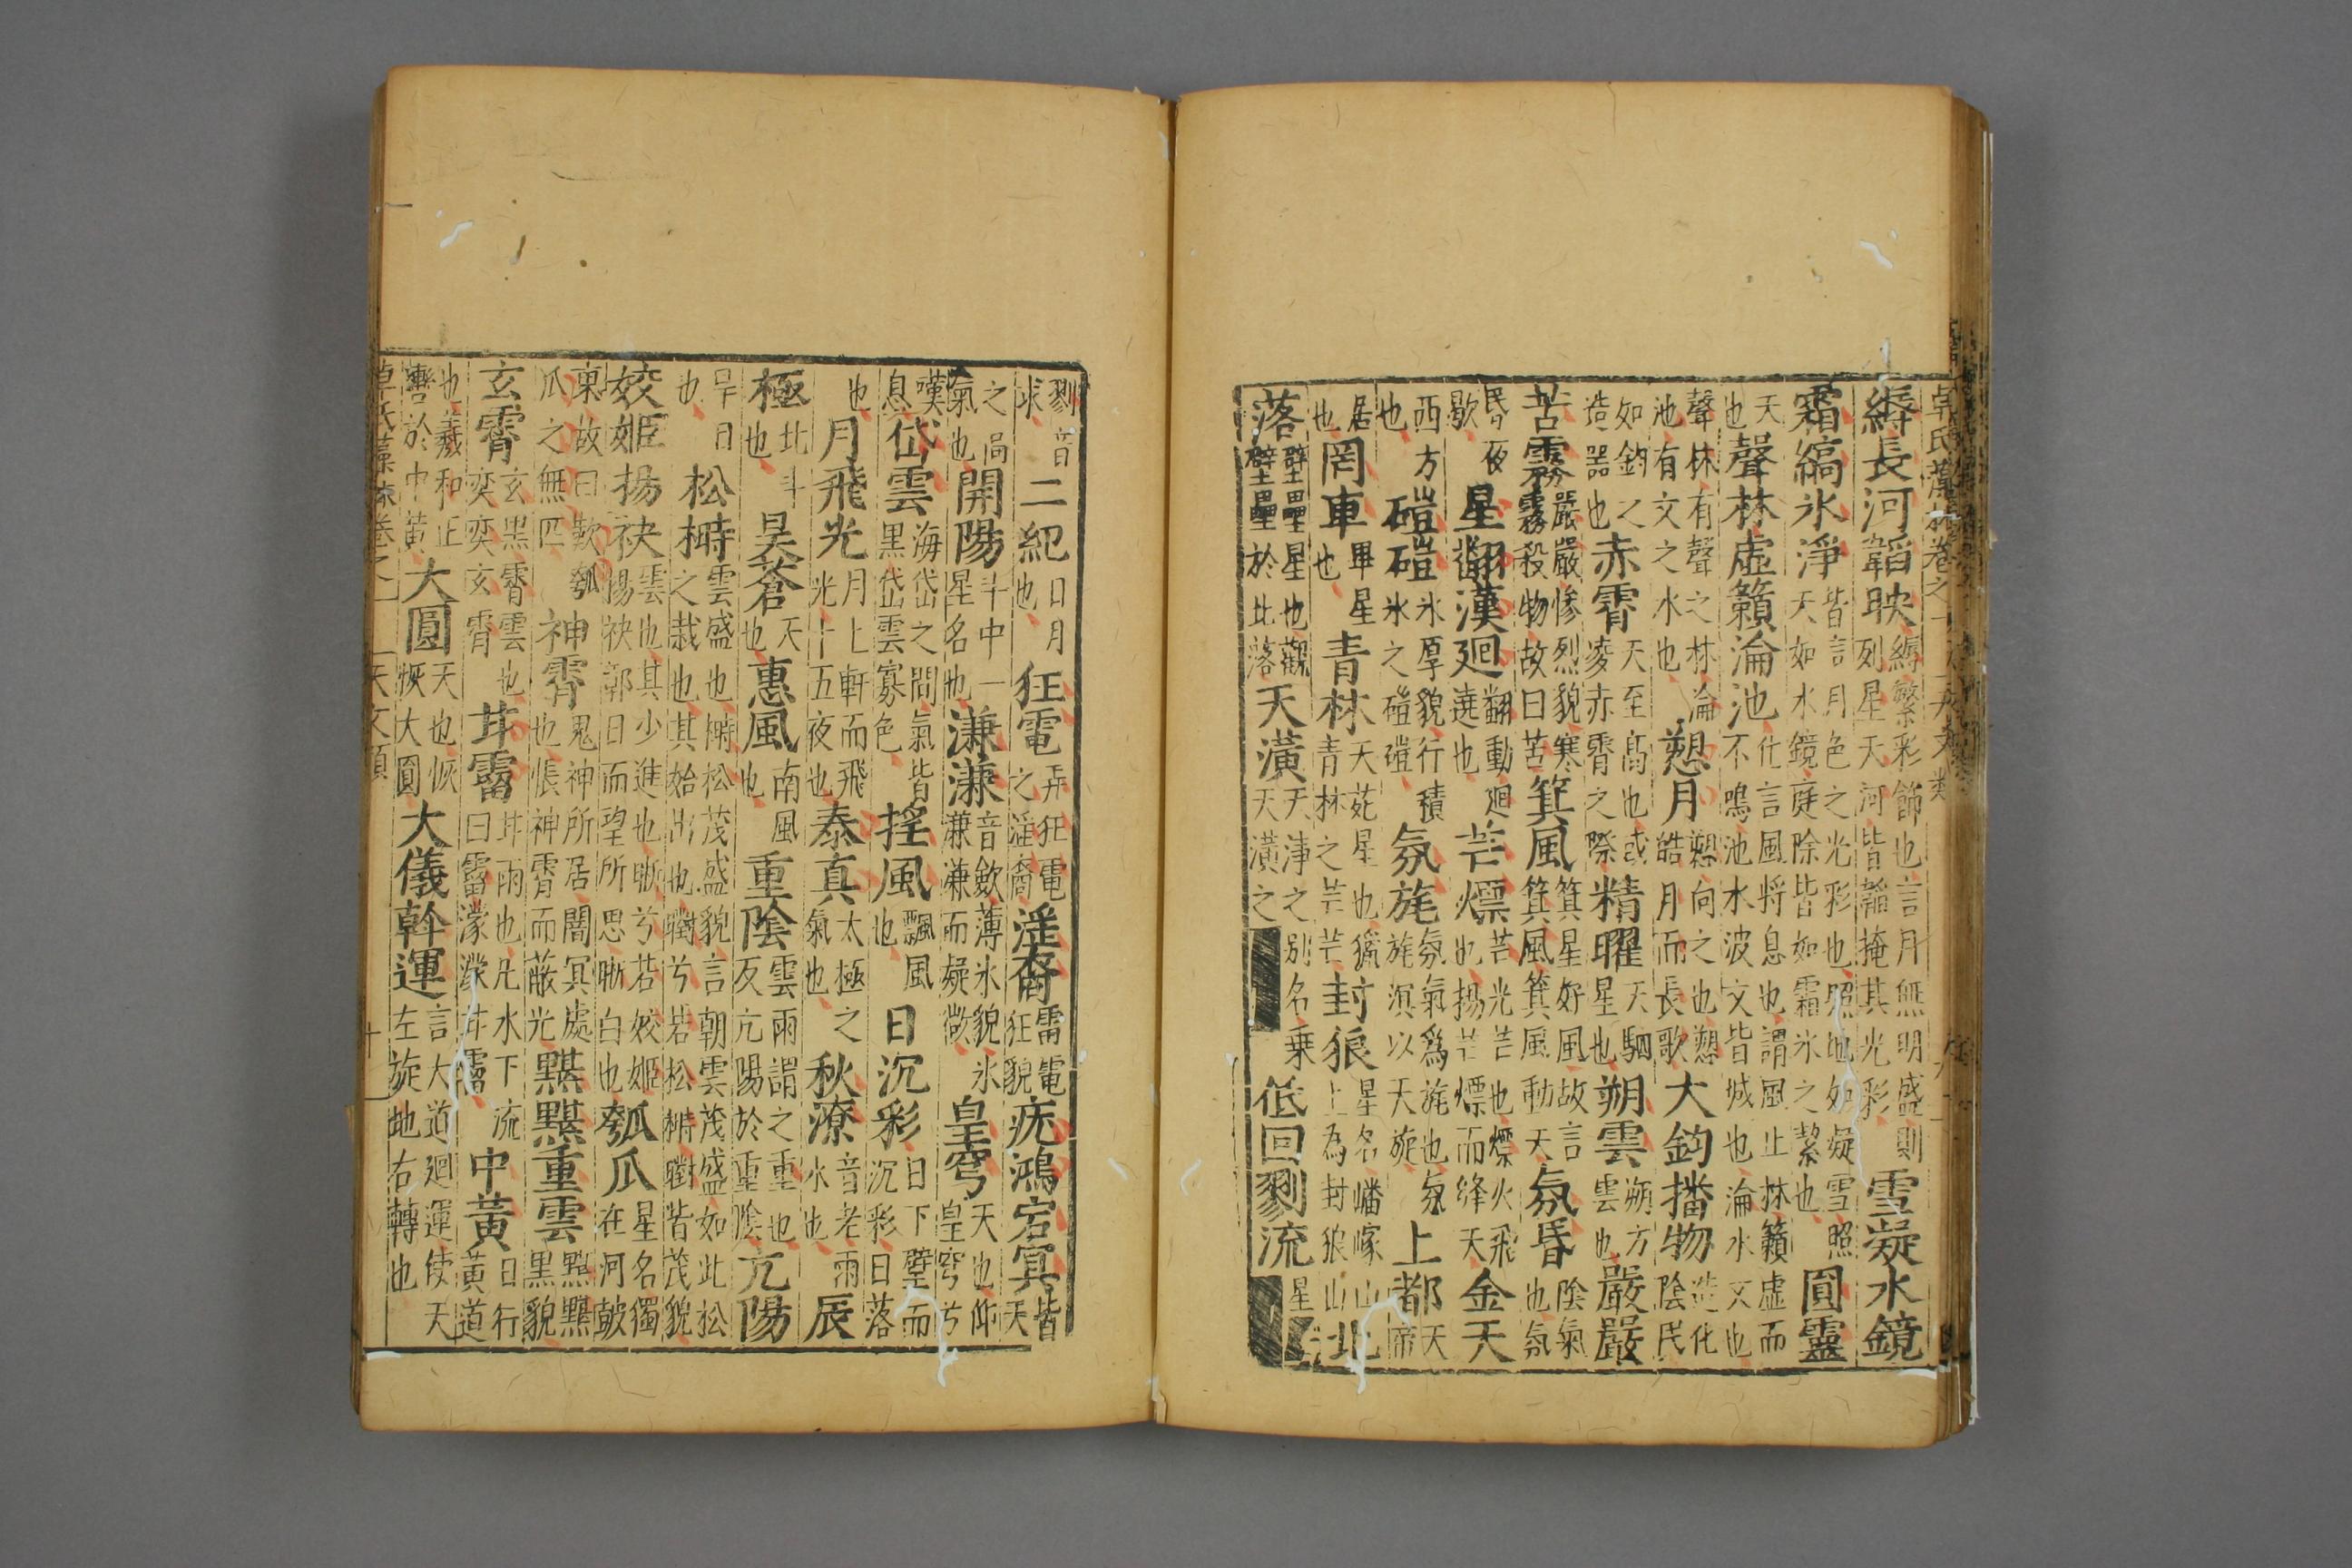 卓氏藻林卷之一 天文類
縟長河韜映縟繁彩飾也言月無明盛則列星天河皆韜掩其光彩雪凝水鏡
霜縞氷淨皆言月色之光彩也照地如凝雪照天如水鏡庭除皆如霜氷之潔也圓靈
天也聲林虛籟淪池化言風将息也謂風止林籟虛而不鳴池水波文皆滅也淪水文也
聲林有聲之林淪池有文之水也愬月愬向之也愬皓月而長歌大鈞播物造化陰民
如鈞之造噐也赤霄天至髙也或凌赤霄之際精曜天駟星也朔雲朔方雲也嚴嚴
苦霧嚴嚴慘烈貌寒霧殺物故曰苦箕風箕星好風故言箕風箕風動天氛昏陰氣也氛
昏夜歇星翻漢廻翻動廻遶也芒熛芒光芒也熛火飛也揚芒熛而絳天金天
西方也磑磑氷厚貌行積氷之磑磑氛旄氛氣爲旄也氛旄溟以天旋上都天帝
居也罔車畢星也青林天苑星也獵青林之芒芒封狼星名嶓嶂山上為封狼山北
落壁壘星也觀壁壘於北落天潢天淨之别名乗天潢之低回剹流星
剹音求二紀日月也狂電弄狂電之淫裔淫裔雷電狂貌㡿鴻宕冥皆天
之高氣也開陽斗中一星名也溓溓音歛薄氷貌氷溓溓而凝㣲皇穹天也仰皇穹兮
嘆息岱雲海岱之間氣皆黒岱雲寡色揺風飄風也日沉彩日下壁而沉彩日落
也月飛光月上軒而飛光十五夜也泰真太極之氣也秋潦音老雨水也辰
極北斗也昊蒼天也惠風南風也重陰雲雨謂之重也反亢陽於重陰亢陽
旱日也松榯雲盛也榯松茂盛貌言朝雲茂盛如此松之栽也其始出也㬣兮若松榯㬣皆茂貌
姣姬揚袂雲也其少進也晰兮若姣姬揚袂鄣日而望所思晰白也瓠瓜星名獨在河皷
東故曰歎瓠瓜之無匹神霄鬼神所居闇冥處也悵神霄而蔽光黮黮重雲黮黮黒貌
玄霄玄黒霄雲也奕奕玄霄茸霤茸雨也凡水下流曰霤濛濛茸霤中黃日行黃道
也羲和正轡於中黃大圓天也恢恢大圓大儀斡運言大道廻運使天左旋地右轉也
卓氏藻林卷之一 天文類 十